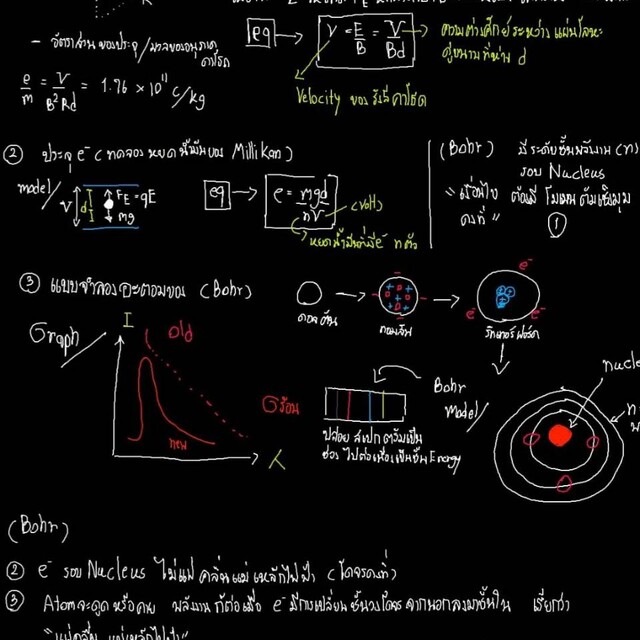 - อัตราส่วนของประจุ/มวลของอนุภาค
คาโธด
eq → v = E/B = V/Bd → ความต่างศักย์ระหว่างแผ่นโลหะ
คู่ขนานที่ห่าง d
e/m = V/B²Rd = 1.76 × 10¹¹ c/kg
Velocity ของรังสีคาโธด
② ประจุ e⁻ (ทดลองหยดน้ำมันของ Millikan)
model/
V d
F_E = qE
mg
eq → e = mgd/nV
(volt)
หยดน้ำมันที่มี e⁻ n ตัว
(Bohr) มีระดับชั้นพลังงาน (n)
รอบ Nucleus
"เงื่อนไข ต้องมี โมเมนตัมเชิงมุม
คงที่" ①
③ แบบจำลองอะตอมของ (Bohr)
ดอลตัน → ทอมสัน → รัทเทอร์ฟอร์ด
e⁻
e⁻
e⁻
Graph/
I
Old
new
λ
Bohr
Model/
ปล่อยสเปกตรัมเป็น
ช่วง ไม่ต่อเนื่องเป็นชั้น Energy
nucle
n
(Bohr)
② e⁻ รอบ Nucleus ไม่แผ่คลื่นแม่เหล็กไฟฟ้า (โคจรคงที่)
③ Atom จะดูดหรือคาย พลังงานก็ต่อเมื่อ e⁻ มีการเปลี่ยนชั้นวงโคจร จากนอกลงมาชั้นใน เรียกว่า
"แผ่คลื่นแม่เหล็กไฟฟ้า"